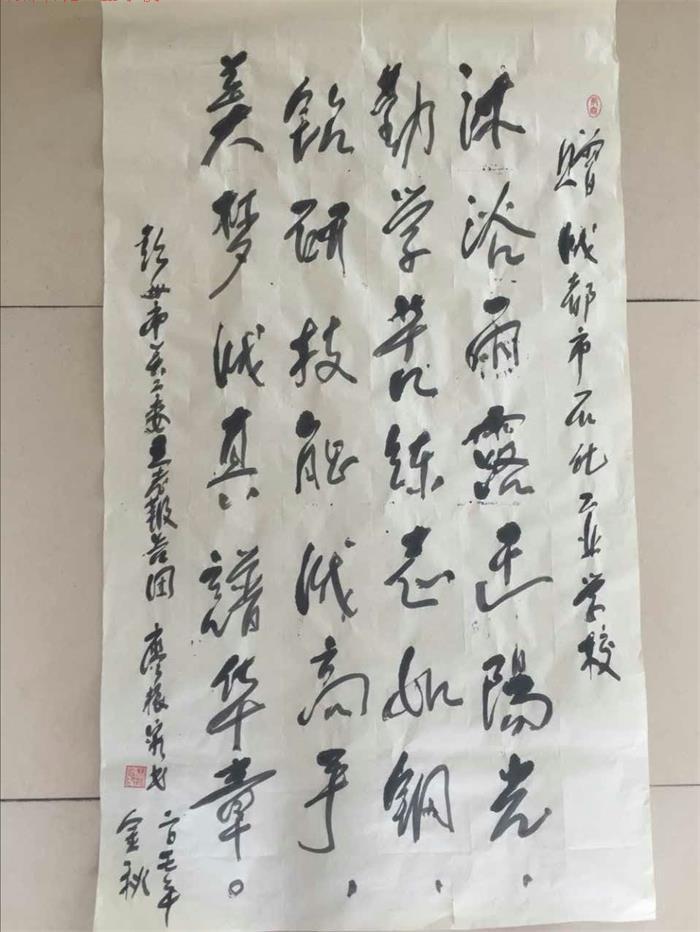 赠成都市石化工业学校
沐浴雨露迎阳光，
勤学苦练志如钢，
钻研技能成高手，
美梦成真谱华章。
彭州市关工委五老报告团 廖振家书
二〇一七年
金秋